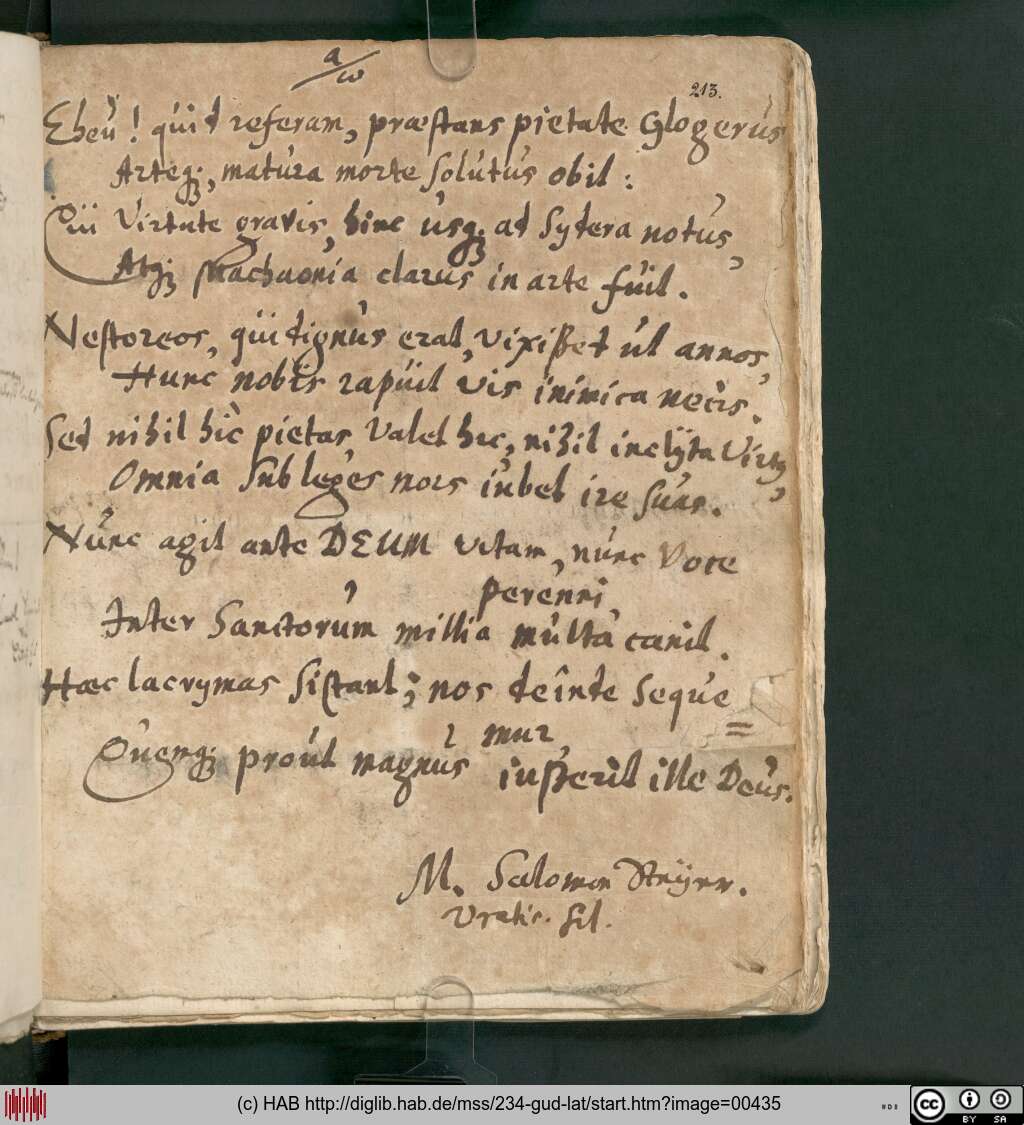 α/ω
213.
Eheu! quid referam, præstans pietate Glogerus
Arteq;, matura morte solutus obit:
Cui Virtute gravis, hinc usq; ad Sydera notus,
Atq; Machaonia clarus in arte fuit.
Nestoreos, qui dignus erat, vixisset ut annos,
Hunc nobis rapuit vis inimica necis.
Sed nihil hîc pietas Valet hec, nihil inclÿta Virtus,
Omnia Sub leges mors iubet ire suas.
Nunc agit ante DEUM vitam, nunc Voce
perenni,
Inter Sanctorum millia multa canit.
Hæc lacrymas sistant; nos deinde seque=
mur,
Quemq; prout magnus iusserit ille Deus.
M. Salomon
Vratis. Sil.
(c) HAB http://diglib.hab.de/mss/234-gud-lat/start.htm?image=00435
cc BY SA